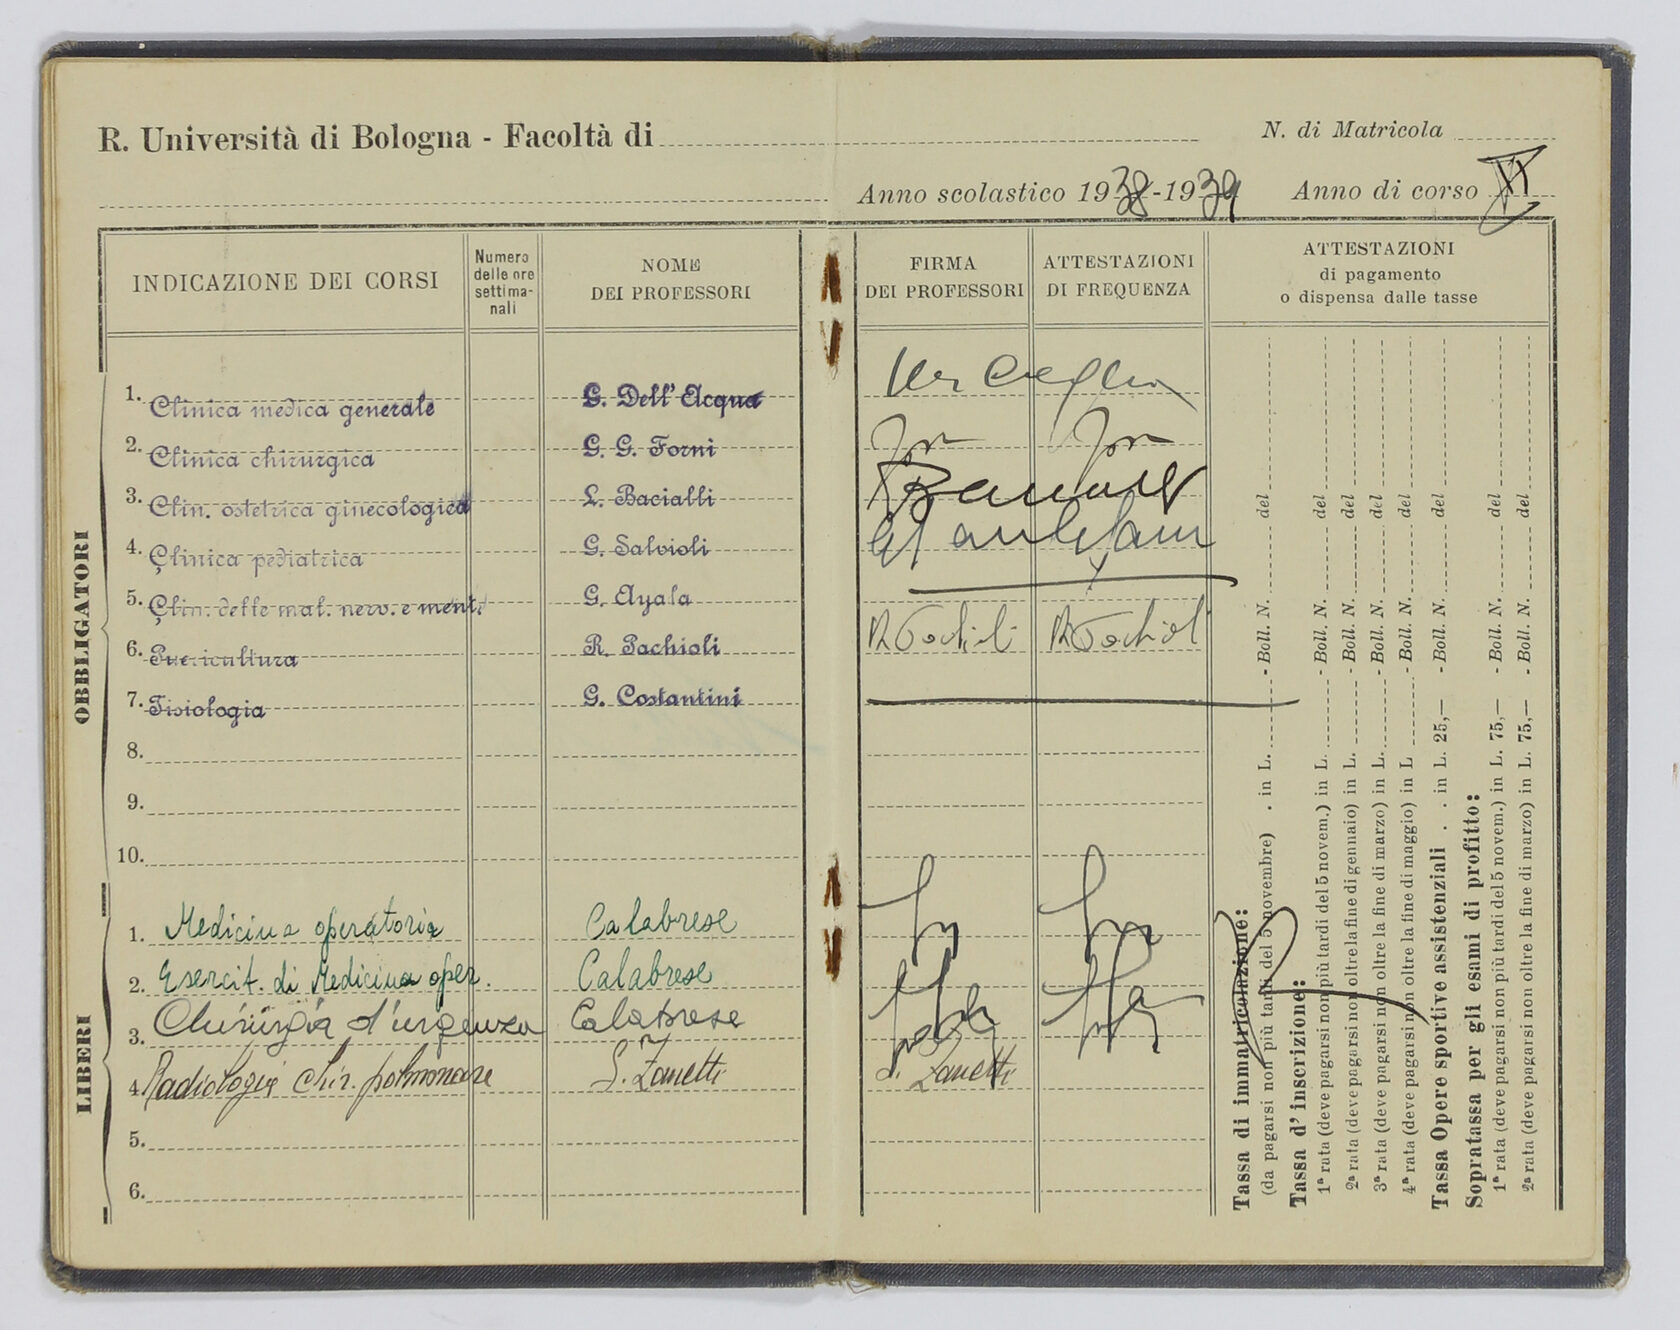 R. Università di Bologna - Facoltà di
N. di Matricola
Anno scolastico 1938-1939 Anno di corso VI
INDICAZIONE DEI CORSI
Numero delle ore settima-nali
NOME DEI PROFESSORI
FIRMA DEI PROFESSORI
ATTESTAZIONI DI FREQUENZA
ATTESTAZIONI
di pagamento
o dispensa dalle tasse
OBBLIGATORI
1. Clinica medica generale G. Dell' Acqua
2. Clinica chirurgica G. G. Forni
3. Clin. ostetrica ginecologica L. Bacialli
4. Clinica pediatrica G. Salvioli
5. Clin. delle mal. nerv. e ment. G. Ayala
6. Puericultura R. Pachioli R Pachioli R Pachioli
7. Fisiologia G. Costantini
8.
9.
10.
LIBERI
1. Medicina operatoria Calabrese
2. Esercit. di Medicina oper. Calabrese
3. Chirurgia d'urgenza Calabrese
4. Radiologia chir. polmonare S. Zanetti S. Zanetti
5.
6.
Tassa di immatricolazione:
(da pagarsi non più tardi del 5 novembre) . in L. - Boll. N. del
Tassa d' inscrizione:
1ª rata (deve pagarsi non più tardi del 5 novem.) in L. - Boll. N. del
2ª rata (deve pagarsi non oltre la fine di gennaio) in L. - Boll. N. del
3ª rata (deve pagarsi non oltre la fine di marzo) in L. - Boll. N. del
4ª rata (deve pagarsi non oltre la fine di maggio) in L - Boll. N. del
Tassa Opere sportive assistenziali . . in L. 25,— - Boll. N. del
Sopratassa per gli esami di profitto:
1ª rata (deve pagarsi non più tardi del 5 novem.) in L. 75,— - Boll. N. del
2ª rata (deve pagarsi non oltre la fine di marzo) in L. 75,— - Boll. N. del